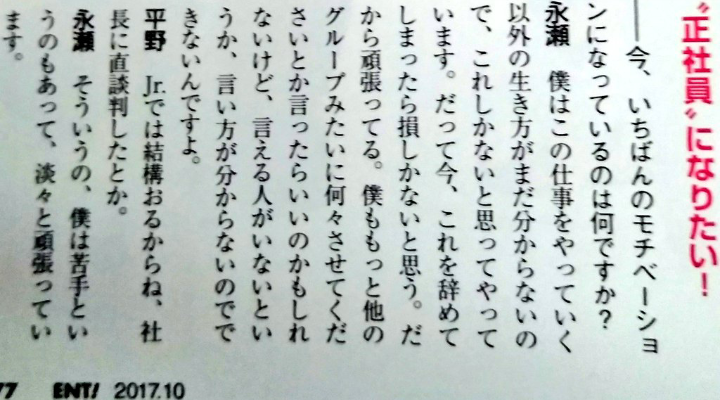 〝正社員〟になりたい！
――今、いちばんのモチベーショ
ンになっているのは何ですか？
永瀬　僕はこの仕事をやっていく
以外の生き方がまだ分からないの
で、これしかないと思ってやって
います。だって今、これを辞めて
しまったら損しかないと思う。だ
から頑張ってる。僕ももっと他の
グループみたいに何々させてくだ
さいとか言ったらいいのかもしれ
ないけど、言える人がいないとい
うか、言い方が分からないのでで
きないんですよ。
平野　Jr.では結構おるからね、社
長に直談判したとか。
永瀬　そういうの、僕は苦手とい
うのもあって、淡々と頑張ってい
ます。
77 ENT! 2017.10